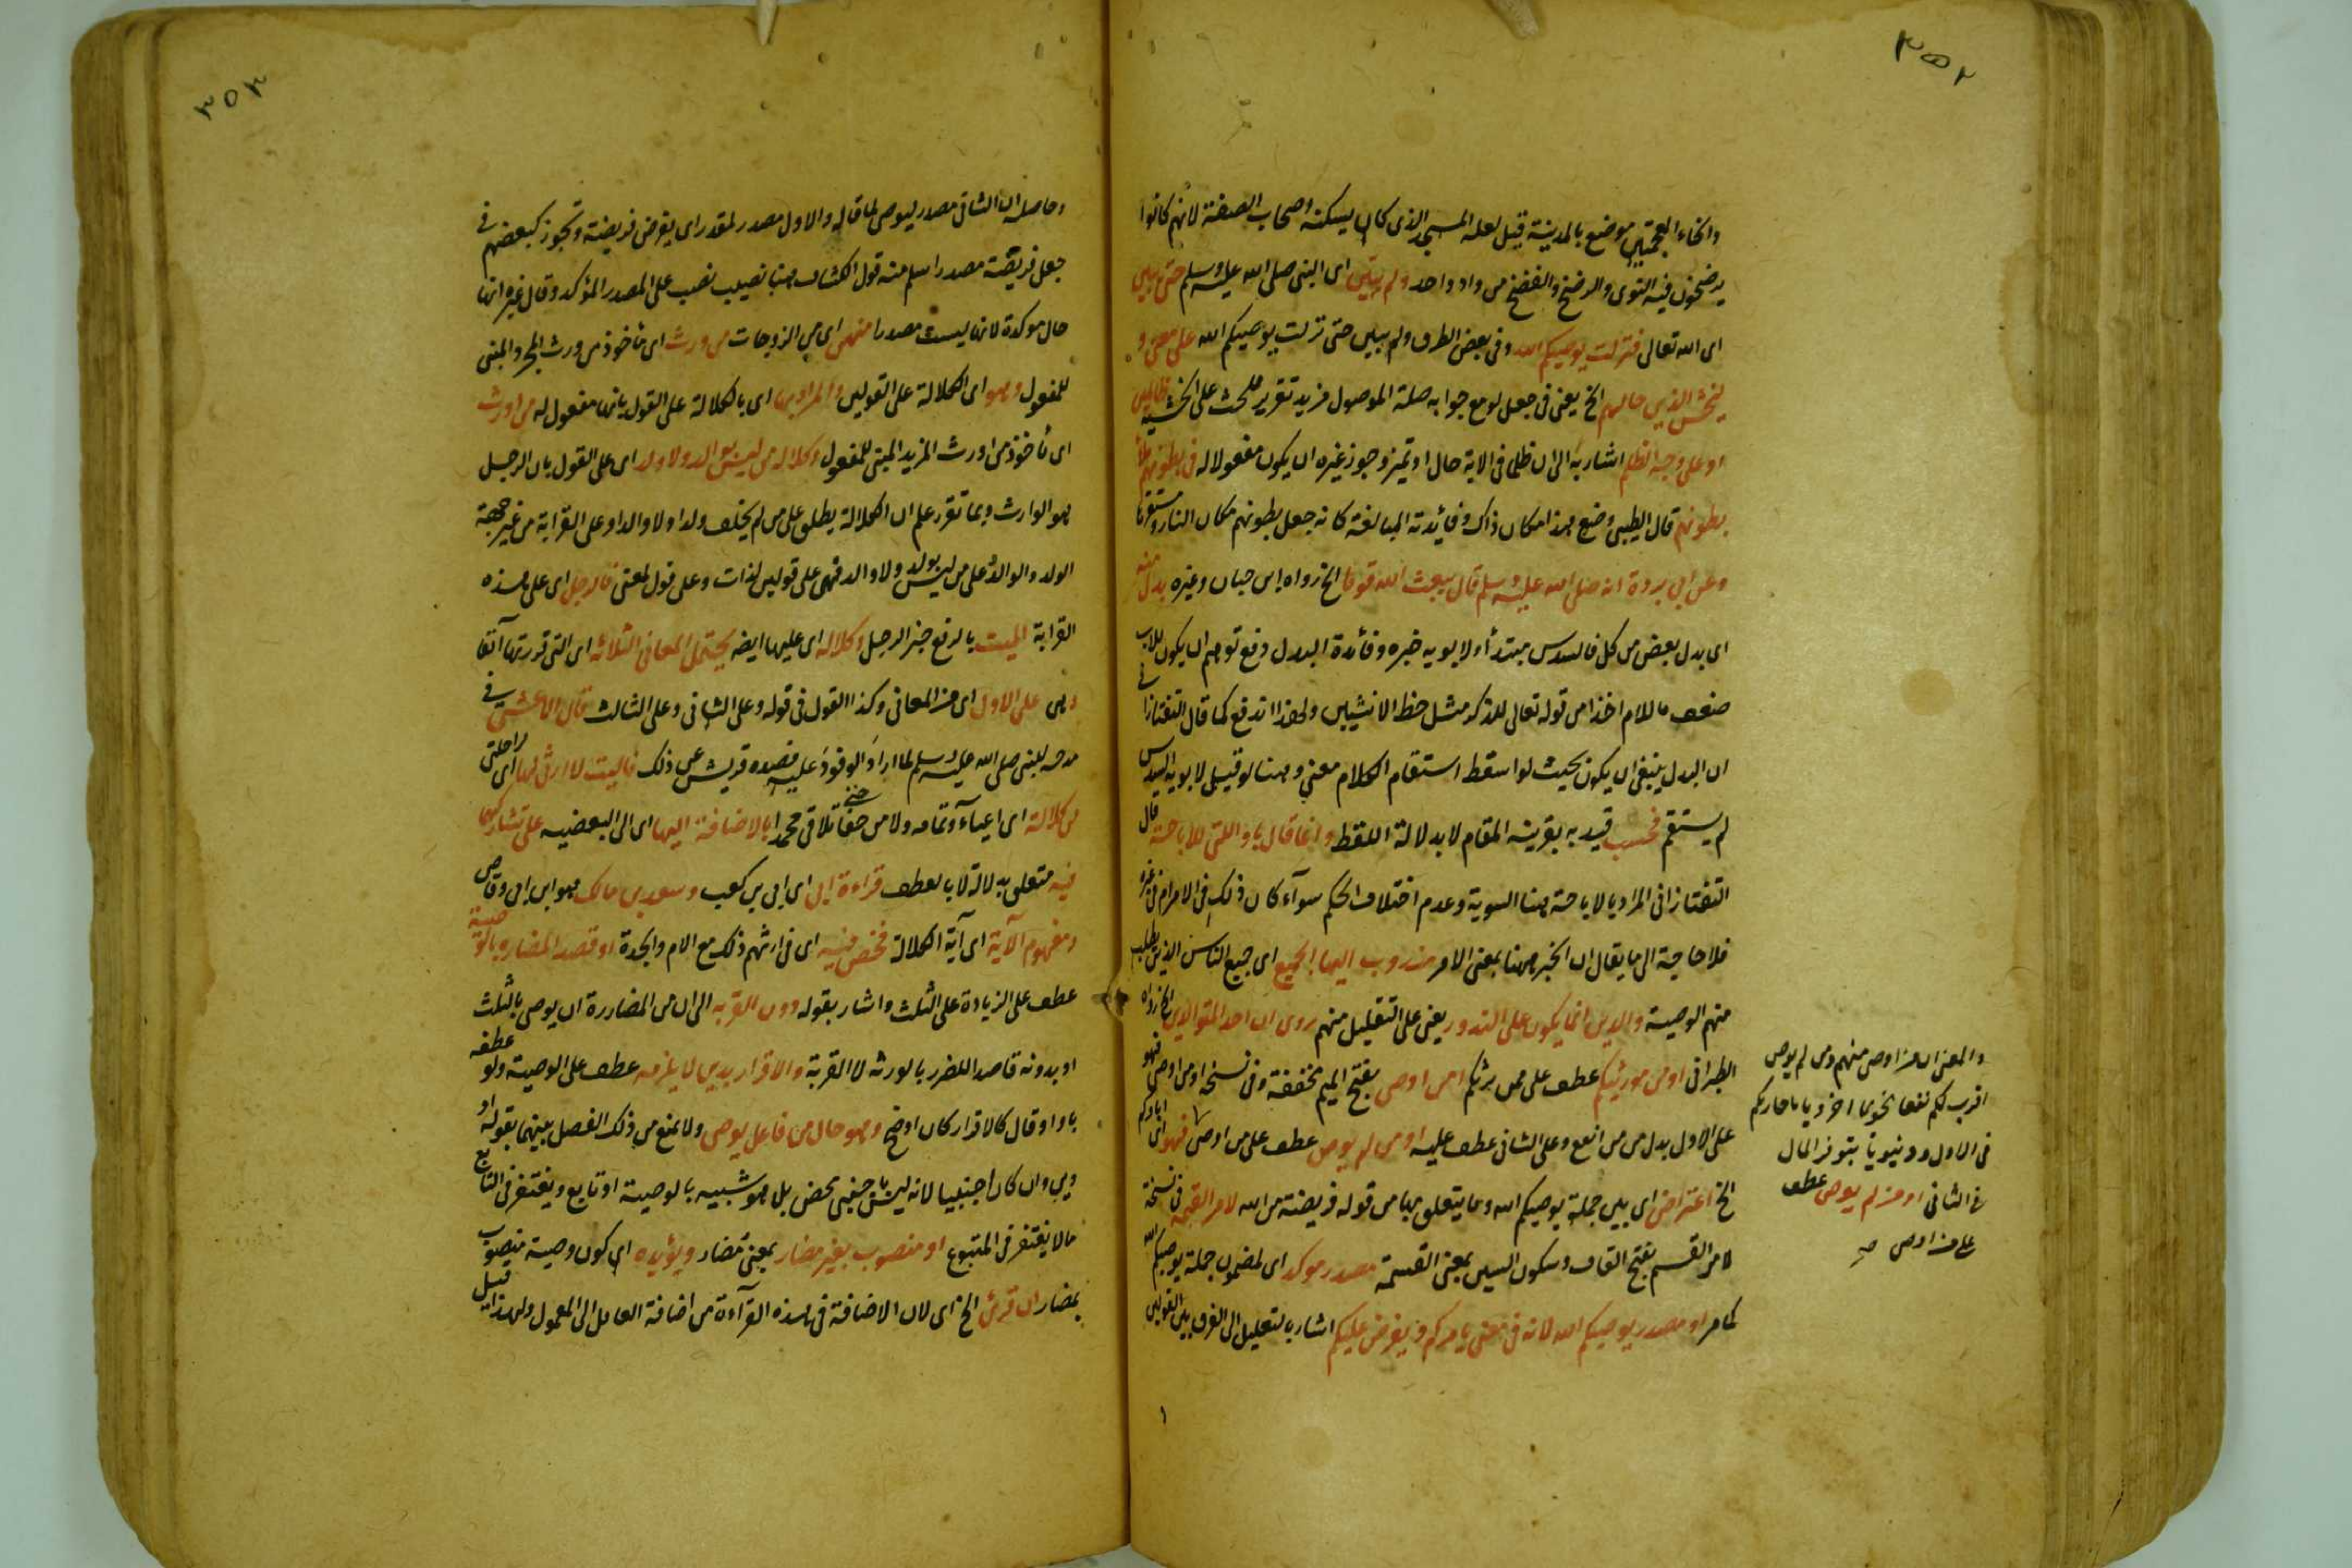 ٣٥٢
والخاء المعجمتين موضع بالمدينة قيل لعله المسجد الذى كان يسكنه اصحاب الصفة لانهم كانوا
يرضخون فيه النوى والرضخ والفضخ من واد واحد ولم يبين اى النبى صلى الله عليه وسلم حتى يبين
اى الله تعالى فنزلت يوصيكم الله وفى بعض الطرق ولم يبين حتى نزلت يوصيكم الله على معنى و
ليخش الذين حالهم الخ يعنى فى جعل لو مع جوابه صلة الموصول مزيد تقرير للحث على الخشية ظالمين
او على وجه الظلم اشار به الى ان ظلما فى الاية حال او تميز وجوز غيره ان يكون مفعولا له فى بطونهم ملأ
بطونهم قال الطيبى وضع هذا مكان ذاك وفائدته المبالغة كانه جعل بطونهم مكان النار ومستقرها
وعن ابى بردة انه صلى الله عليه وسلم قال يبعث الله قوما الخ رواه ابن حبان وغيره بدل منه
اى بدل بعض من كل فالسدس مبتدأ ولابويه خبره وفائدة البدل دفع توهم ان يكون للاب
ضعف ما للام اخذا من قوله تعالى للذكر مثل حظ الانثيين ولهذا اندفع كما قال التفتازانى
ان البدل ينبغى ان يكون بحيث لو اسقط استقام الكلام معنى وههنا لو قيل لابويه السدس
لم يستقم فحسب قيد به بقرينة المقام لا بدلالة اللفظ وانما قال باو التى للاباحة قال
التفتازانى المراد بالاباحة ههنا السوية وعدم اختلاف الحكم سوآء كان ذلك فى الامر ام فى غيره
فلا حاجة الى ما يقال ان الخبر ههنا بمعنى الامر مندوب اليها الجميع اى جميع الناس الذين يطلب
منهم الوصية والدين انما يكون على الندور يعنى على التقليل منهم روى ان احد المتوالدين الخ رواه
الطبرانى او من مورثيكم عطف على ممن يرثكم امن اوصى بفتح الميم مخففة وفى نسخة او من اوصى فهو
على الاول بدل من من انفع وعلى الثانى عطف عليه او من لم يوص عطف على من اوصى فهو اى اباؤكم
الخ اعتراض اى بين جملة يوصيكم الله وما يتعلق بها من قوله فريضة من الله لامر القسمة فى نسخة
لامر القسم بفتح القاف وسكون السين بمعنى القسمة مصدر موكد اى لمضمون جملة يوصيكم الله
كما مر او مصدر يوصيكم الله لانه فى معنى يامركم ويفرض عليكم اشار بالتعليل الى الفرق بين القولين
والمعنى ان من اوصى منهم ومن لم يوص
اقرب لكم نفعا اخرويا
فى الاول ودنيويا بتوفر المال
فى الثانى او من لم يوص عطف
على من اوصى صح
٣٥٣
وحاصله ان الثانى مصدر ليوصى لما قاله والاول مصدر لمقدر اى يفرض فريضة وتجوز كبعضهم فى
جعل فريضة مصدرا اسلم منه قول الكشاف ههنا نصيب نصب على المصدر المؤكد وقال غيره انها
حال موكدة لانها ليست مصدرا منهن اى من الزوجات من ورث اى مأخوذ من ورث المجرد المبنى
للمفعول وهو اى الكلالة على القولين والمراد بها اى بالكلالة على القول بانها مفعول له من اورث
اى مأخوذ من اورث المزيد المبنى للمفعول وكلاله من ليس بوالد ولا ولد اى على القول بان الرجل
هو الوارث وبما تقرر علم ان الكلالة يطلق على من لم يخلف ولدا ولا والدا وعلى القرابة من غير جهة
الولد والوالد وعلى من ليس بولد ولا والد فهى على قولين لذات وعلى قول لمعنى فالرجل اى على هذه
القرابة الميت بالرفع خبر الرجل وكلاله اى عليها ايضا يحتمل المعانى الثلاثه اى التى قررتها آنفا
وهى على الاول اى من المعانى وكذا القول فى قوله وعلى الثانى وعلى الثالث قال الاعشى فى
مدحه للنبى صلى الله عليه وسلم لما اراد الوفود عليه فصده قريش عن ذلك فاليت لا ارثى لها اى راحلتى
من كلالة اى اعيآء وتمامه ولا من حفا حتى تلاقى محمدا بالاضافة اليها اى الى البعضيه على تشاركهما
فيه متعلق بدلالة لا بالعطف قراءة ابى اى ابى بن كعب وسعد بن مالك هو ابن ابى وقاص
ومفهوم الآية اى آية الكلالة فخص فيه اى فى ارثهم ذلك مع الام والجدة او قصد المضاره بالوصية
عطف على الزيادة على الثلث واشار بقوله دون القربه الى ان من المضاررة ان يوصى بالثلث
او بدونه قاصدا للضرر بالورثه لا القربة والاقرار بدين لا يلزمه عطف على الوصية ولو عطفه
باو او قال كالاقرار كان اوضح وهو حال من فاعل يوصى ولا يمنع من ذلك الفصل بينهما بقوله او
دين وان كان اجنبيا لانه ليس باجنبى محض بل هو شبيه بالوصية او تابع ويغتفر فى التابع
مالا يغتفر فى المتبوع او منصوب بغير مضار بمعنى مضار ويؤيده اى كون وصية منصوب
بمضار ان قرئ الخ اى لان الاضافة فى هذه القرآءة من اضافة العامل الى المعمول ولهذا قيل